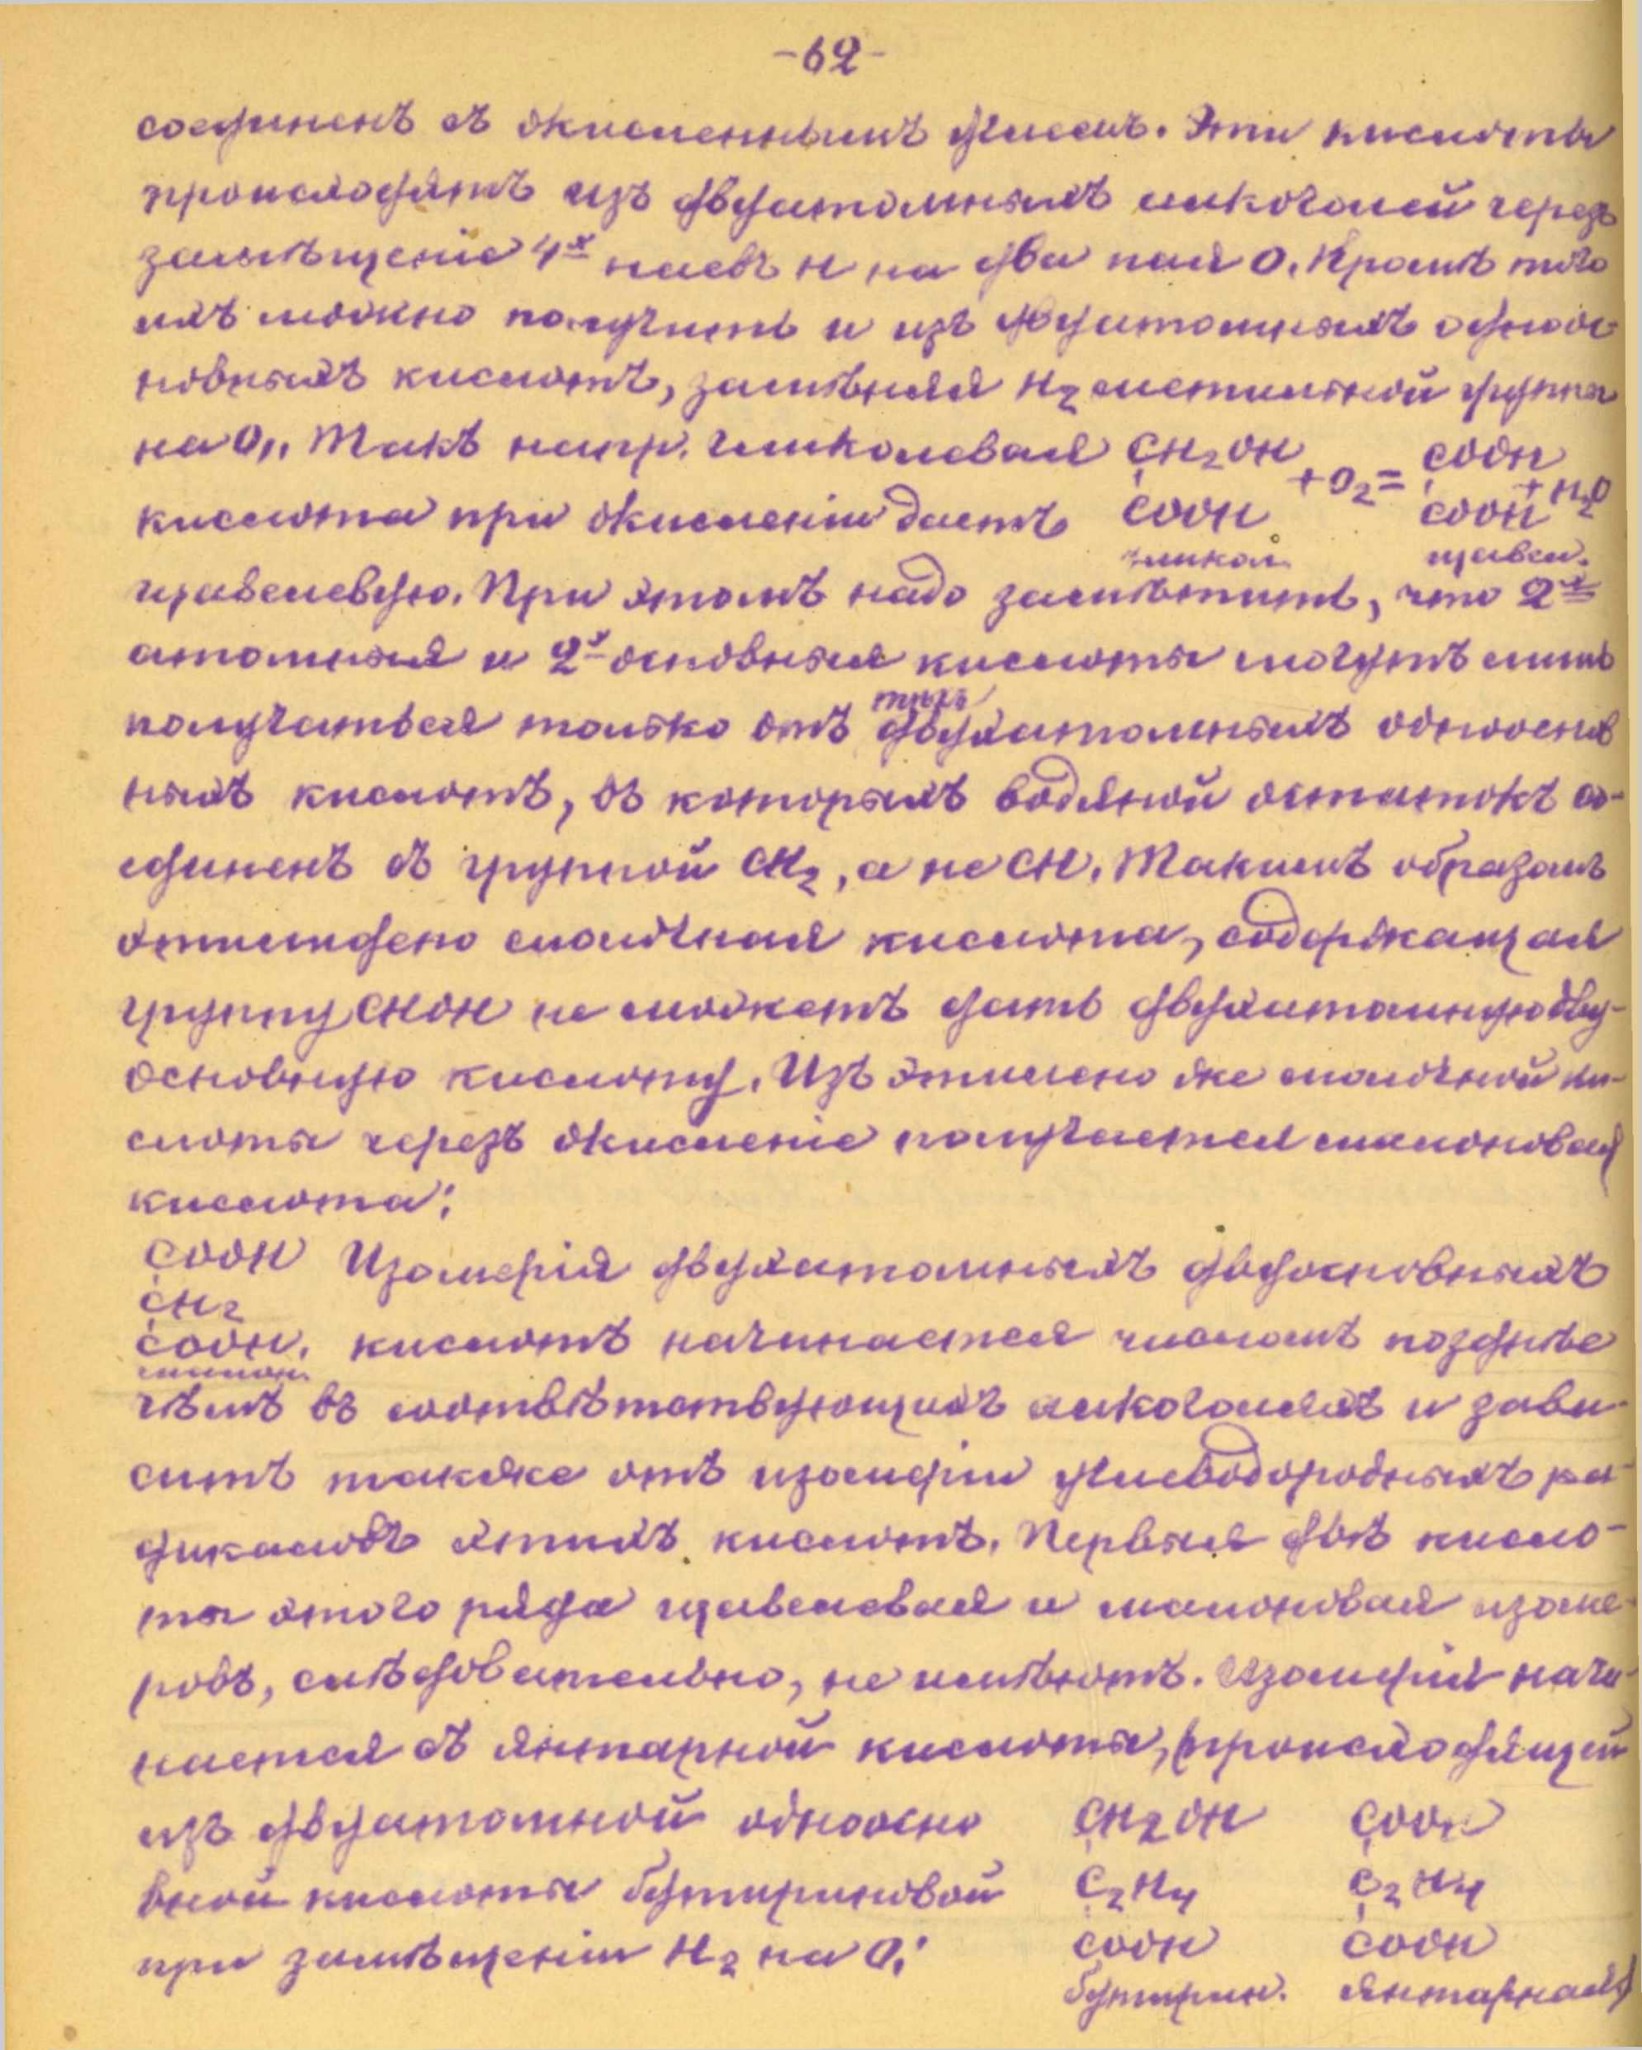 -62-
соединенъ съ окисленнымъ углемъ. Эти кислоты
происходятъ изъ двуатомныхъ алкоголей черезъ
замѣщеніе 4х паевъ H на два пая O. Кромѣ того
ихъ можно получить и изъ двуатомныхъ одноос-
новныхъ кислотъ, замѣняя H2 метильной группы
на O,, Такъ напр. гликолевая CH2OH + O2 = COOH + H2O
кислота при окисленіи даетъ COOH COOH
гликол. щавел.
щавелевую. При этомъ надо замѣтить, что 2х
атомныя и 2х основныя кислоты могутъ лишь
получаться только отъ тѣхъ двухатомныхъ однооснов
ныхъ кислотъ, въ которыхъ водяной остатокъ со-
единенъ съ группой CH2, а не CH. Такимъ образомъ
этилидено молочная кислота, содержащая
группу CHOH не можетъ дать двухатомную дву-
основную кислоту. Изъ этилено же молочной ки-
слоты черезъ окисленіе получается малоновая
кислота:
COOH Изомерія двухатомныхъ двуосновныхъ
CH2
COOH. кислотъ начинается числомъ позднѣе
малон.
чѣмъ въ соотвѣтствующихъ алкоголяхъ и зави-
ситъ также отъ изомеріи углеводородныхъ ра-
дикаловъ этихъ кислотъ. Первыя двѣ кисло-
ты этого ряда щавелевая и малоновая изоме-
ровъ, слѣдовательно, не имѣютъ. Изомерія начи-
нается съ янтарной кислоты, происходящей
изъ двуатомной одноосно CH2OH COOH
вной кислоты бутириновой C2H4 C2H4
при замѣщеніи H2 на O: COOH COOH
бутирин. Янтарная